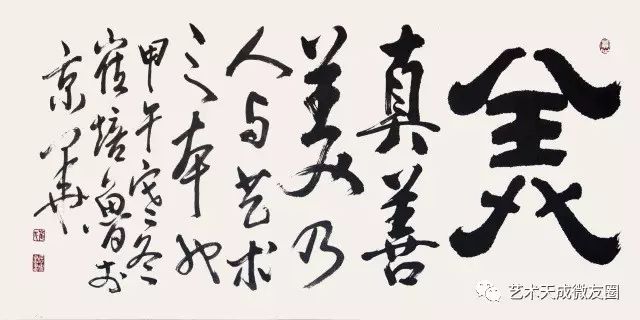 美
真善
美乃
人与艺术
之本也
甲午寒冬
崔培鲁于
京华
艺术天成微友圈